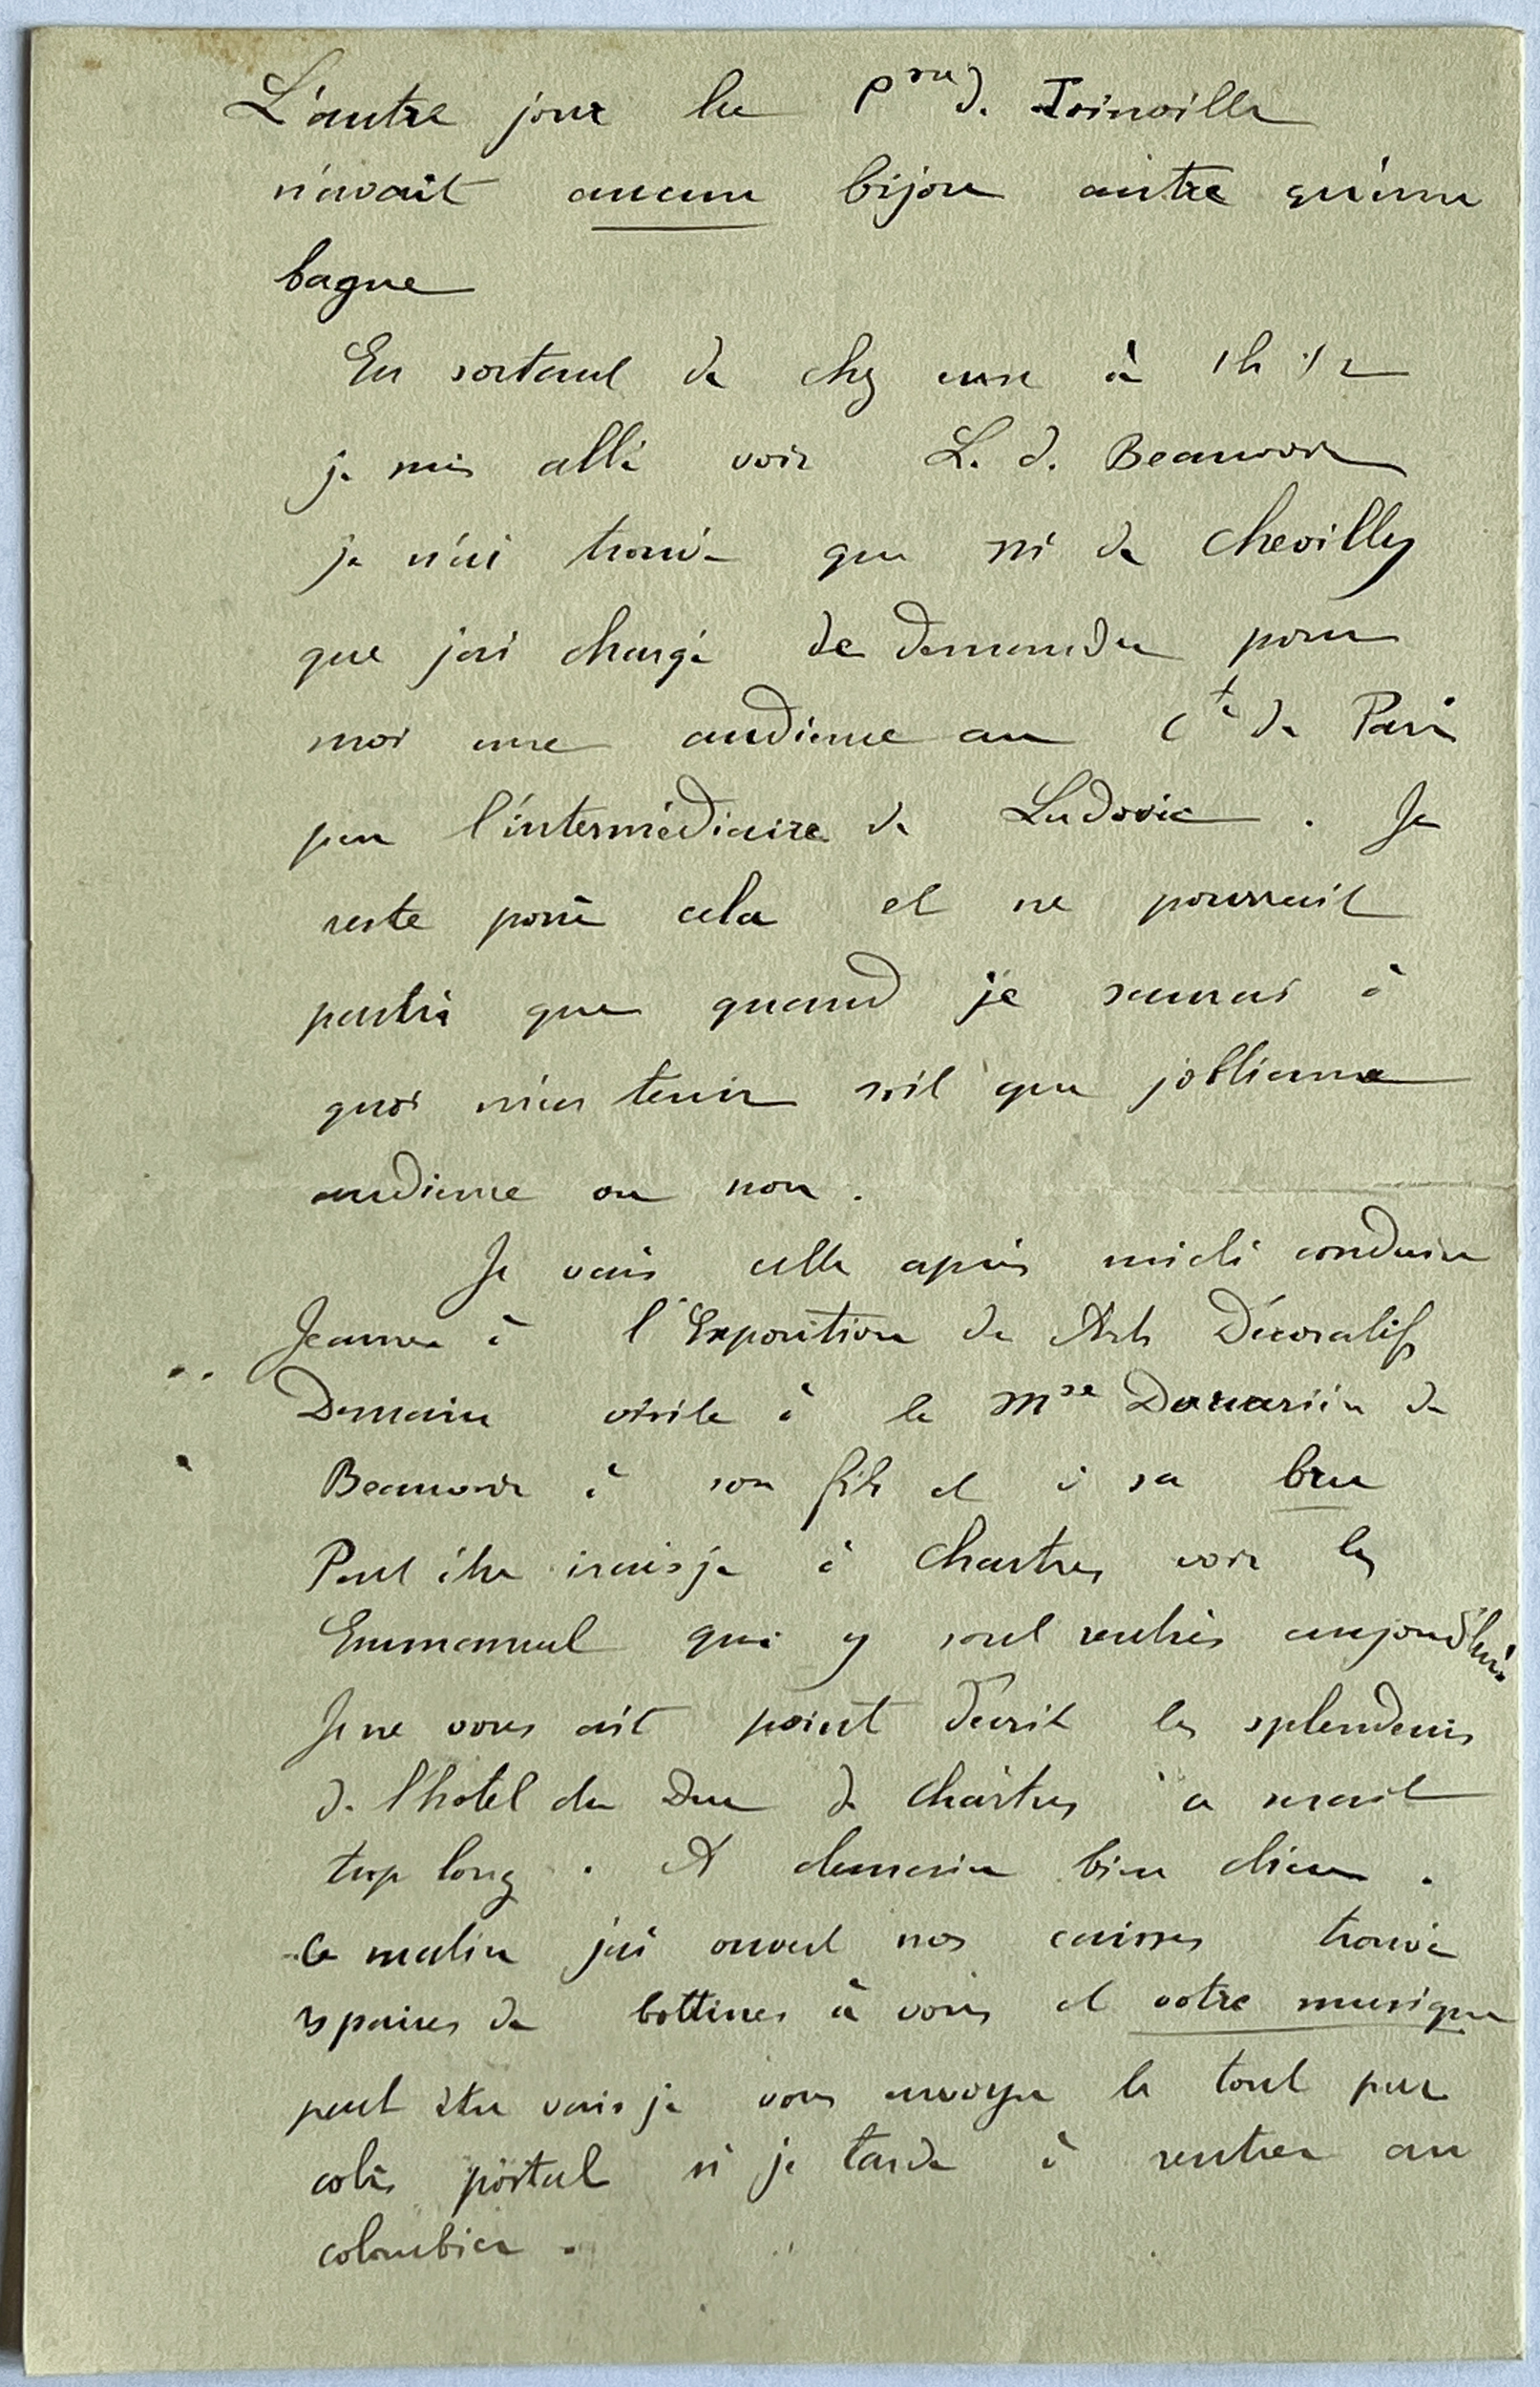 L'autre jour la Psse d. Joinville
n'avait aucun bijou autre qu'une
bague
En sortant de chez eux à 1h 1/2
je suis allé voir L. d. Beauvoir
je n'ai trouvé que Mr de Chevilly
que j'ai chargé de demander pour
moi une audience au Cte de Paris
par l'intermédiaire de Ludovic. Je
reste pour cela et ne pourrait
partir que quand je saurai à
quoi m'en tenir soit que j'obtienne
audience ou non.
Je vais cette après midi conduire
Jeanne à l'Exposition des Arts Décoratifs
Demain visite à la Mse Douairière de
Beauvoir à son fils et à sa bru
Peut être irais je à Chartres voir les
Emmanuel qui y sont rentrés aujourd'hui
Je ne vous ait point décrit les splendeurs
d. l'hotel du Duc de Chartres ça serait
trop long. A demain bien chère.
Ce matin j'ai ouvert nos caisses trouvé
paires de bottines à vous et votre musique
peut être vais je vous envoyer le tout par
colis postal si je tarde à rentrer au
colombier.